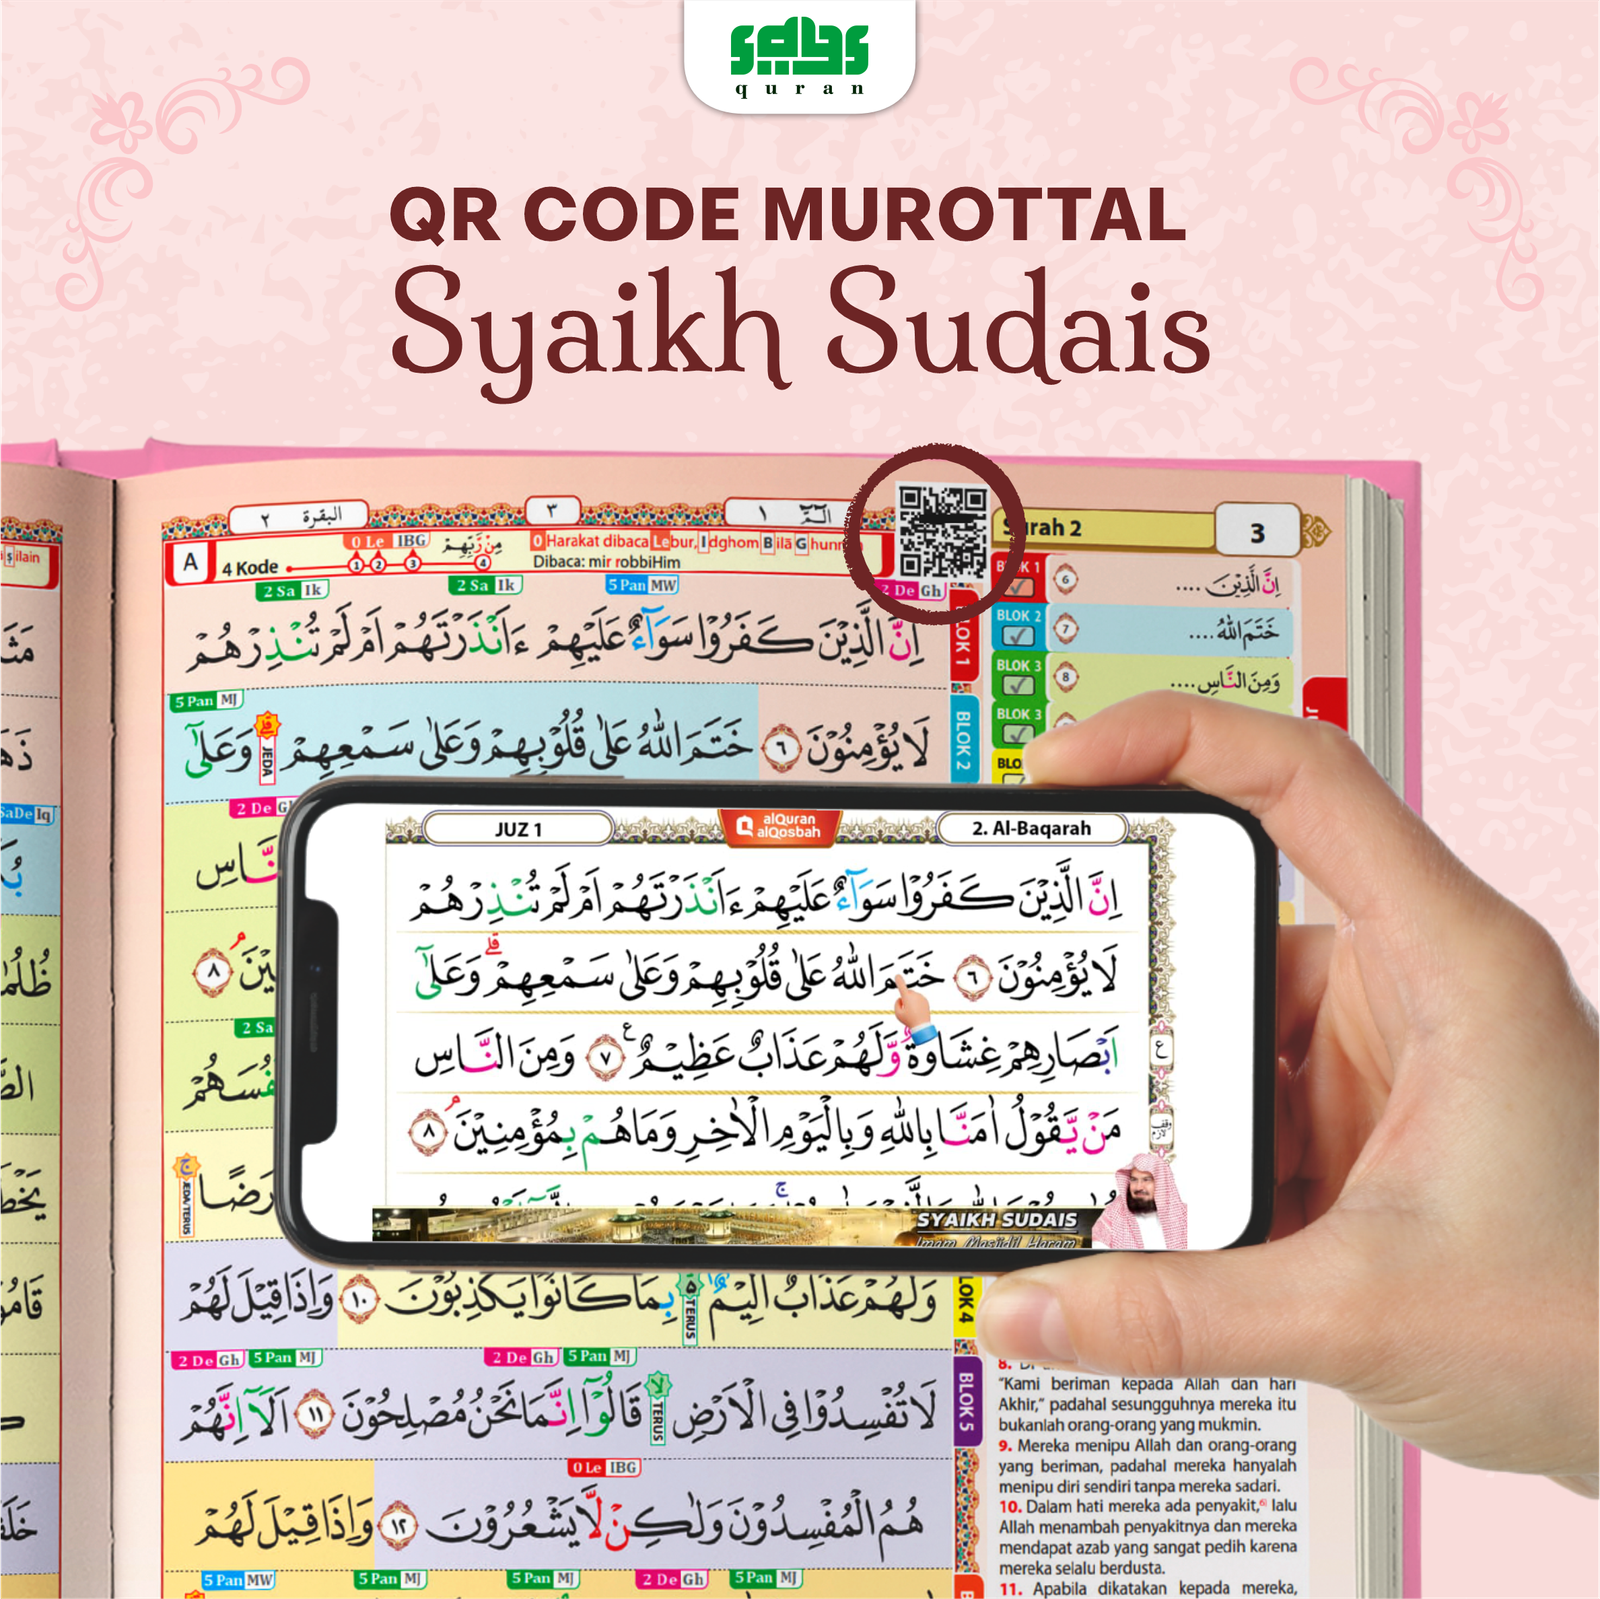 quran
QR CODE MUROTTAL
Syaikh Sudais
البقرة ٢
٣
الۤمّۤ ١
Surah 2
3
A
4 Kode
0 Le IBG
مِنْ رَّبِّهِمْ
1 2 3 4
0 Harakat dibaca Lebur, Idghom Bilā Ghunnah
Dibaca: mir robbiHim
2 Sa Ik
2 Sa Ik
5 Pan MW
2 De Gh
اِنَّ الَّذِيْنَ كَفَرُوْا سَوَاۤءٌ عَلَيْهِمْ ءَاَنْذَرْتَهُمْ اَمْ لَمْ تُنْذِرْهُمْ
BLOK 1
٦
اِنَّ الَّذِيْنَ ....
BLOK 2
7
خَتَمَ اللّٰهُ ....
BLOK 3
8
وَمِنَ النَّاسِ ....
BLOK 3
5 Pan MJ
لَا يُؤْمِنُوْنَ ٦ خَتَمَ اللّٰهُ عَلٰى قُلُوْبِهِمْ وَعَلٰى سَمْعِهِمْ ۗ JEDA وَعَلٰٓى
BLOK 2
2 De Gh
JUZ 1
alQuran
alQosbah
2. Al-Baqarah
اِنَّ الَّذِيْنَ كَفَرُوْا سَوَاۤءٌ عَلَيْهِمْ ءَاَنْذَرْتَهُمْ اَمْ لَمْ تُنْذِرْهُمْ
لَا يُؤْمِنُوْنَ ٦ خَتَمَ اللّٰهُ عَلٰى قُلُوْبِهِمْ وَعَلٰى سَمْعِهِمْ ۗ وَعَلٰٓى
اَبْصَارِهِمْ غِشَاوَةٌ وَّلَهُمْ عَذَابٌ عَظِيْمٌ ࣖ ٧ وَمِنَ النَّاسِ
مَنْ يَّقُوْلُ اٰمَنَّا بِاللّٰهِ وَبِالْيَوْمِ الْاٰخِرِ وَمَا هُمْ بِمُؤْمِنِيْنَ ۘ ٨
ع
وقف لازم
SYAIKH SUDAIS
Imam Masjidil Haram
نَّاسِ
٨
2 Sa
JEDA/TERUS
وَلَهُمْ عَذَابٌ اَلِيْمٌ ۢ ۙ TERUS بِمَا كَانُوْا يَكْذِبُوْنَ ١٠ وَاِذَا قِيْلَ لَهُمْ
2 De Gh
5 Pan MJ
2 De Gh
5 Pan MJ
لَا تُفْسِدُوْا فِى الْاَرْضِ ۙ TERUS قَالُوْٓا اِنَّمَا نَحْنُ مُصْلِحُوْنَ ١١ اَلَآ اِنَّهُمْ
BLOK 5
0 Le IBG
هُمُ الْمُفْسِدُوْنَ وَلٰكِنْ لَّا يَشْعُرُوْنَ ١٢ وَاِذَا قِيْلَ لَهُمْ
5 Pan MW
5 Pan MJ
5 Pan MJ
2 De Gh
5 Pan MJ
"Kami beriman kepada Allah dan hari
Akhir," padahal sesungguhnya mereka itu
bukanlah orang-orang yang mukmin.
9. Mereka menipu Allah dan orang-orang
yang beriman, padahal mereka hanyalah
menipu diri sendiri tanpa mereka sadari.
10. Dalam hati mereka ada penyakit,⁶⁾ lalu
Allah menambah penyakitnya dan mereka
mendapat azab yang sangat pedih karena
mereka selalu berdusta.
11. Apabila dikatakan kepada mereka,